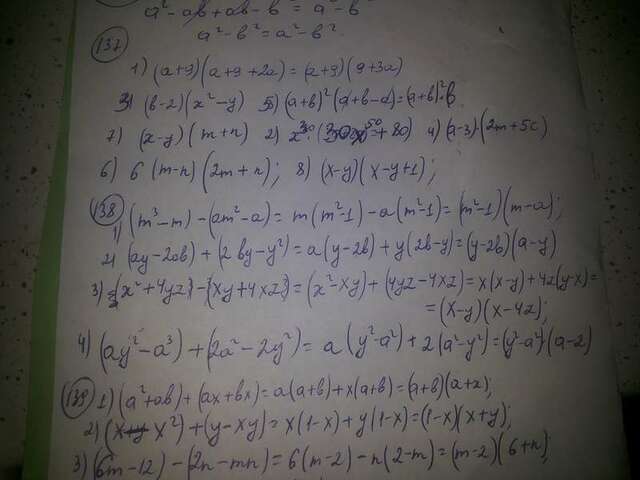 a² - ab + ab - b² = a² - b²
a² - b² = a² - b²
137
1) (a+y)(a+y+2a) = (a+y)(y+3a)
3) (b-2)(x²-y) 5) (a+b)²(a+b-a) = (a+b)²b
7) (x-y)(m+n) 2) 4) (a-3)(2m+5c)
6) 6(m-n)(2m+n); 8) (x-y)(x-y+1);
138
1) (m³-m)-(am²-a) = m(m²-1)-a(m²-1) = (m²-1)(m-a);
2) (ay-2ab)+(2by-y²) = a(y-2b)+y(2b-y) = (y-2b)(a-y)
3) (x²+4yz)-(xy+4xz) = (x²-xy)+(4yz-4xz) = x(x-y)+4z(y-x) =
= (x-y)(x-4z);
4) (ay²-a³)+(2a²-2y²) = a(y²-a²)+2(a²-y²) = (y²-a²)(a-2)
139
1) (a²+ab)+(ax+bx) = a(a+b)+x(a+b) = (a+b)(a+x);
2) (x-x²)+y-xy = x(1-x)+y(1-x) = (1-x)(x+y);
3) (6m-12)-(2n-mn) = 6(m-2)-n(2-m) = (m-2)(6+n);